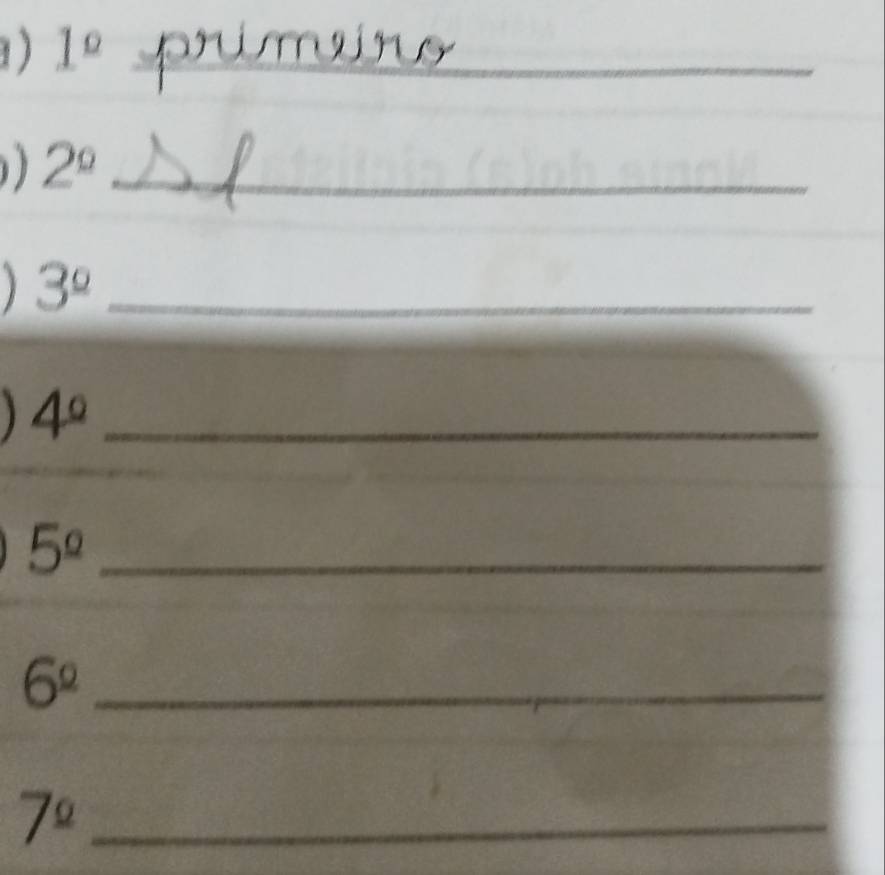 ) 1º primeiro
) 2º
) 3º
) 4º
) 5º
6º
7º